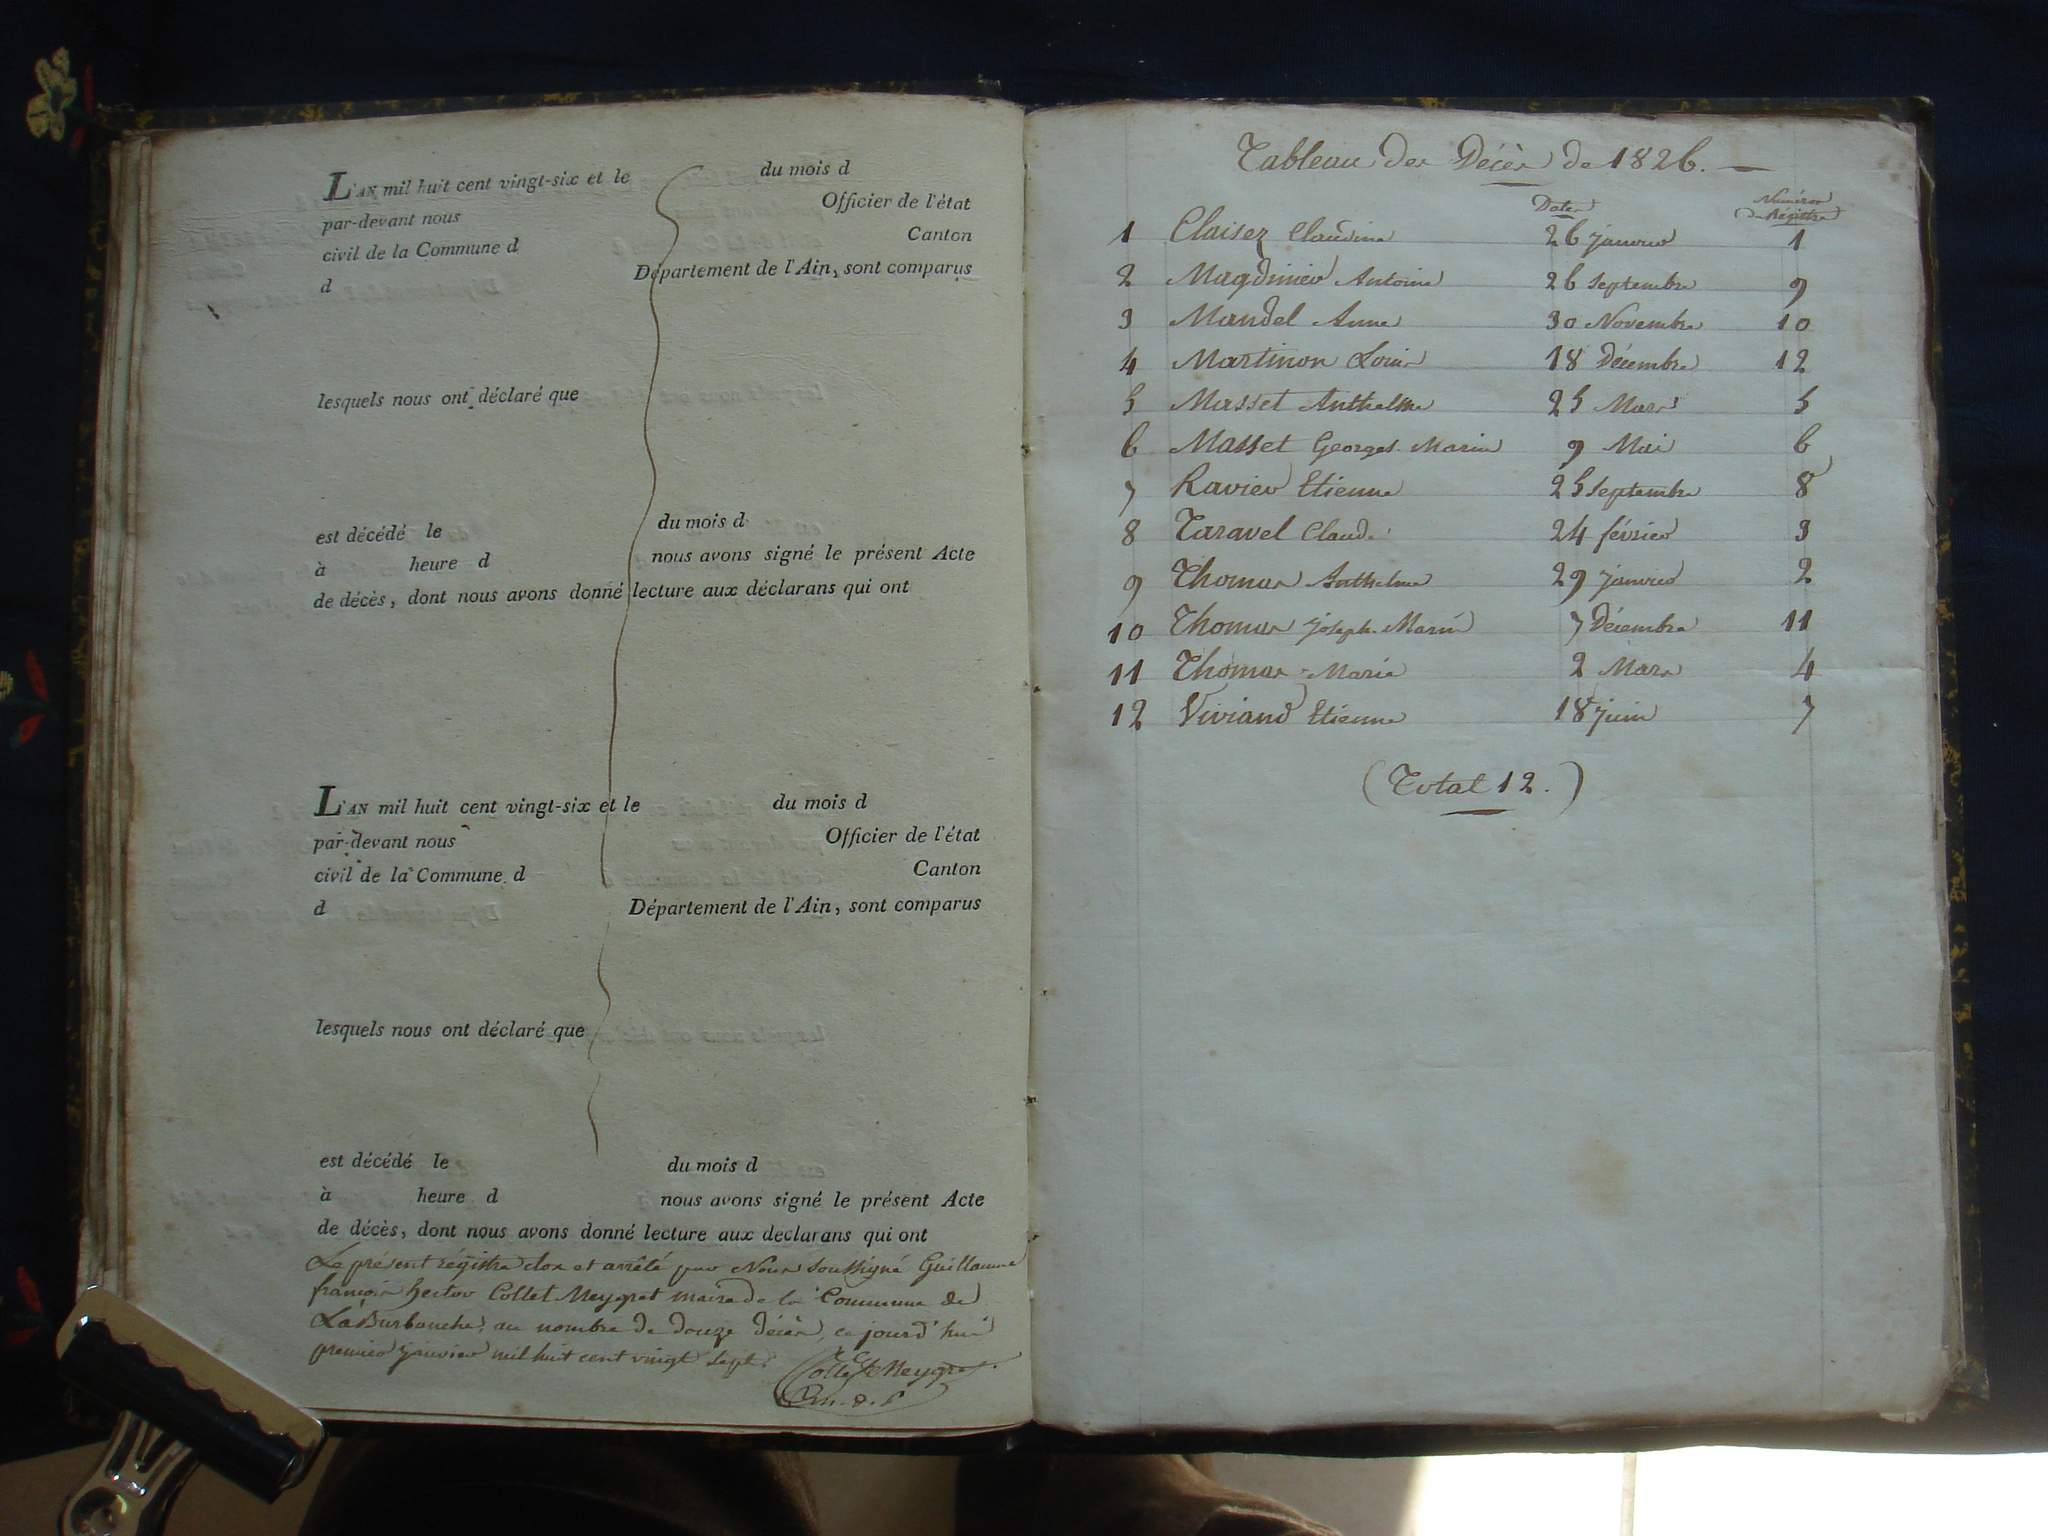 L'AN mil huit cent vingt-six et le du mois d
par-devant nous Officier de l'état
civil de la Commune d Canton
d Département de l'Ain, sont comparus
lesquels nous ont déclaré que
est décédé le du mois d
à heure d nous avons signé le présent Acte
de décès, dont nous avons donné lecture aux déclarans qui ont
L'AN mil huit cent vingt-six et le du mois d
par-devant nous Officier de l'état
civil de la Commune d Canton
d Département de l'Ain, sont comparus
lesquels nous ont déclaré que
est décédé le du mois d
à heure d nous avons signé le présent Acte
de décès, dont nous avons donné lecture aux declarans qui ont
Le présent régistre clos et arrêté par Nous soussigné Guillaume
françois hector Collet Meygret maire de la Commune de
La Burbanche, au nombre de douze décès, ce jourd'hui
premier janvier mil huit cent vingt sept.
Collet Meygret
Tableau des Décès de 1826.
Dates Numéros Régistre
1 Claisez Claudine 26 janvier 1
2 Magdinier Antoine 26 septembre 9
3 Mandel Anne 30 Novembre 10
4 Martinon Louis 18 Décembre 12
5 Masset Anthelme 25 Mars 5
6 Masset Georges Marie 9 Mai 6
7 Ravier Etienne 25 septembre 8
8 Taravel Claude 24 février 3
9 Thomas Anthelme 29 janvier 2
10 Thomas joseph-Marie 7 Décembre 11
11 Thomas Marie 2 Mars 4
12 Viviand Etienne 18 juin 7
(Total 12.)